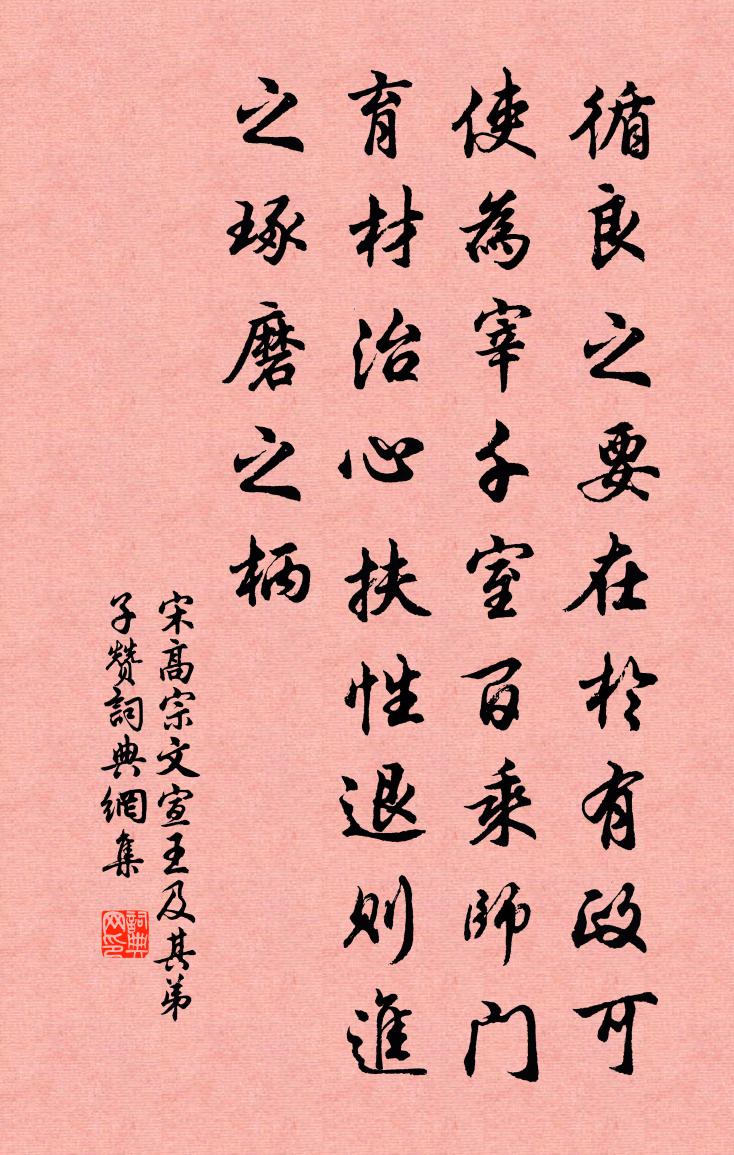 循良之要在於有政可
使為宰千室百乘師門
育材治心扶性退則進
之琢磨之柄
宋高宗文宣王及其弟
子贊詞典網集
詞典网印